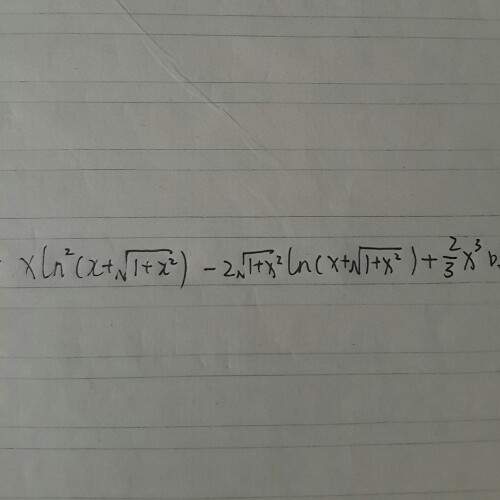 x ln²(x+√(1+x²)) − 2√(1+x²) ln(x+√(1+x²)) + 2/3 x³